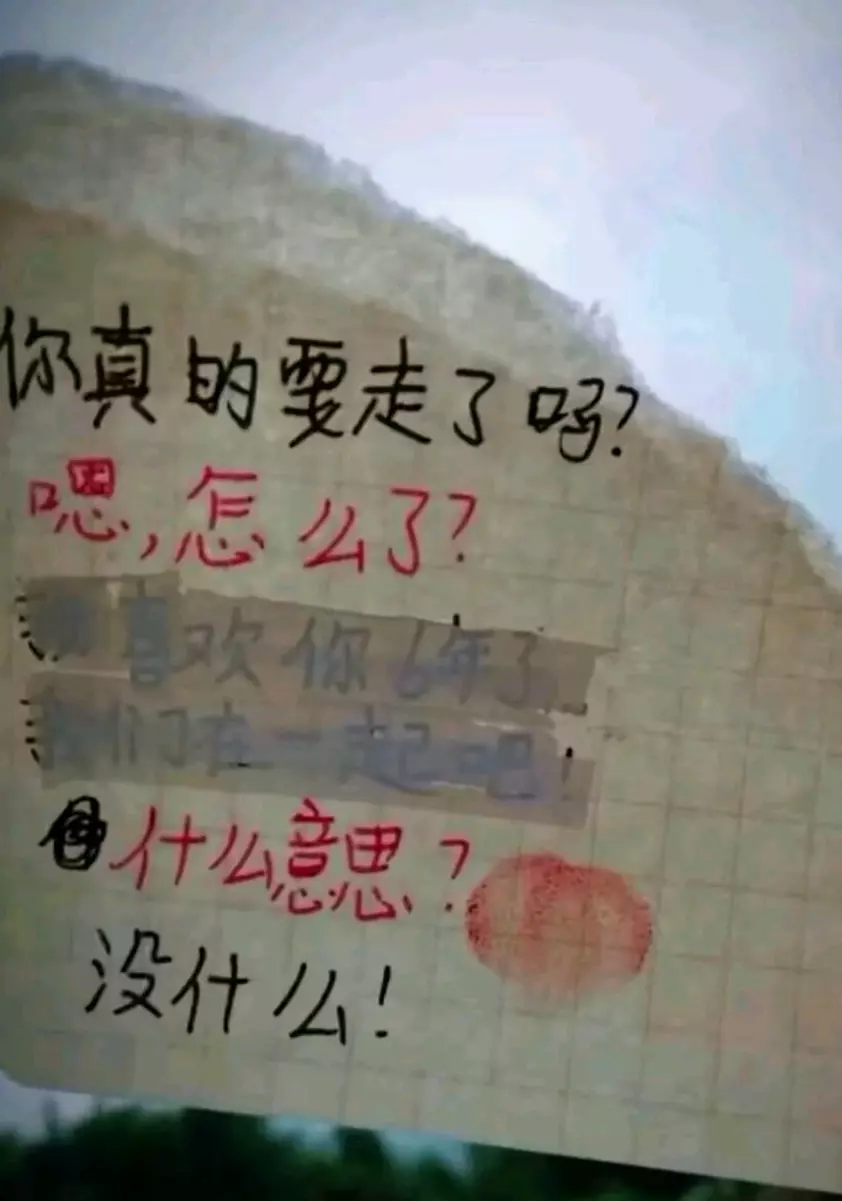 你真的要走了吗?
嗯,怎么了?
喜欢你6年了
我们在一起吧!
什么意思?
没什么!